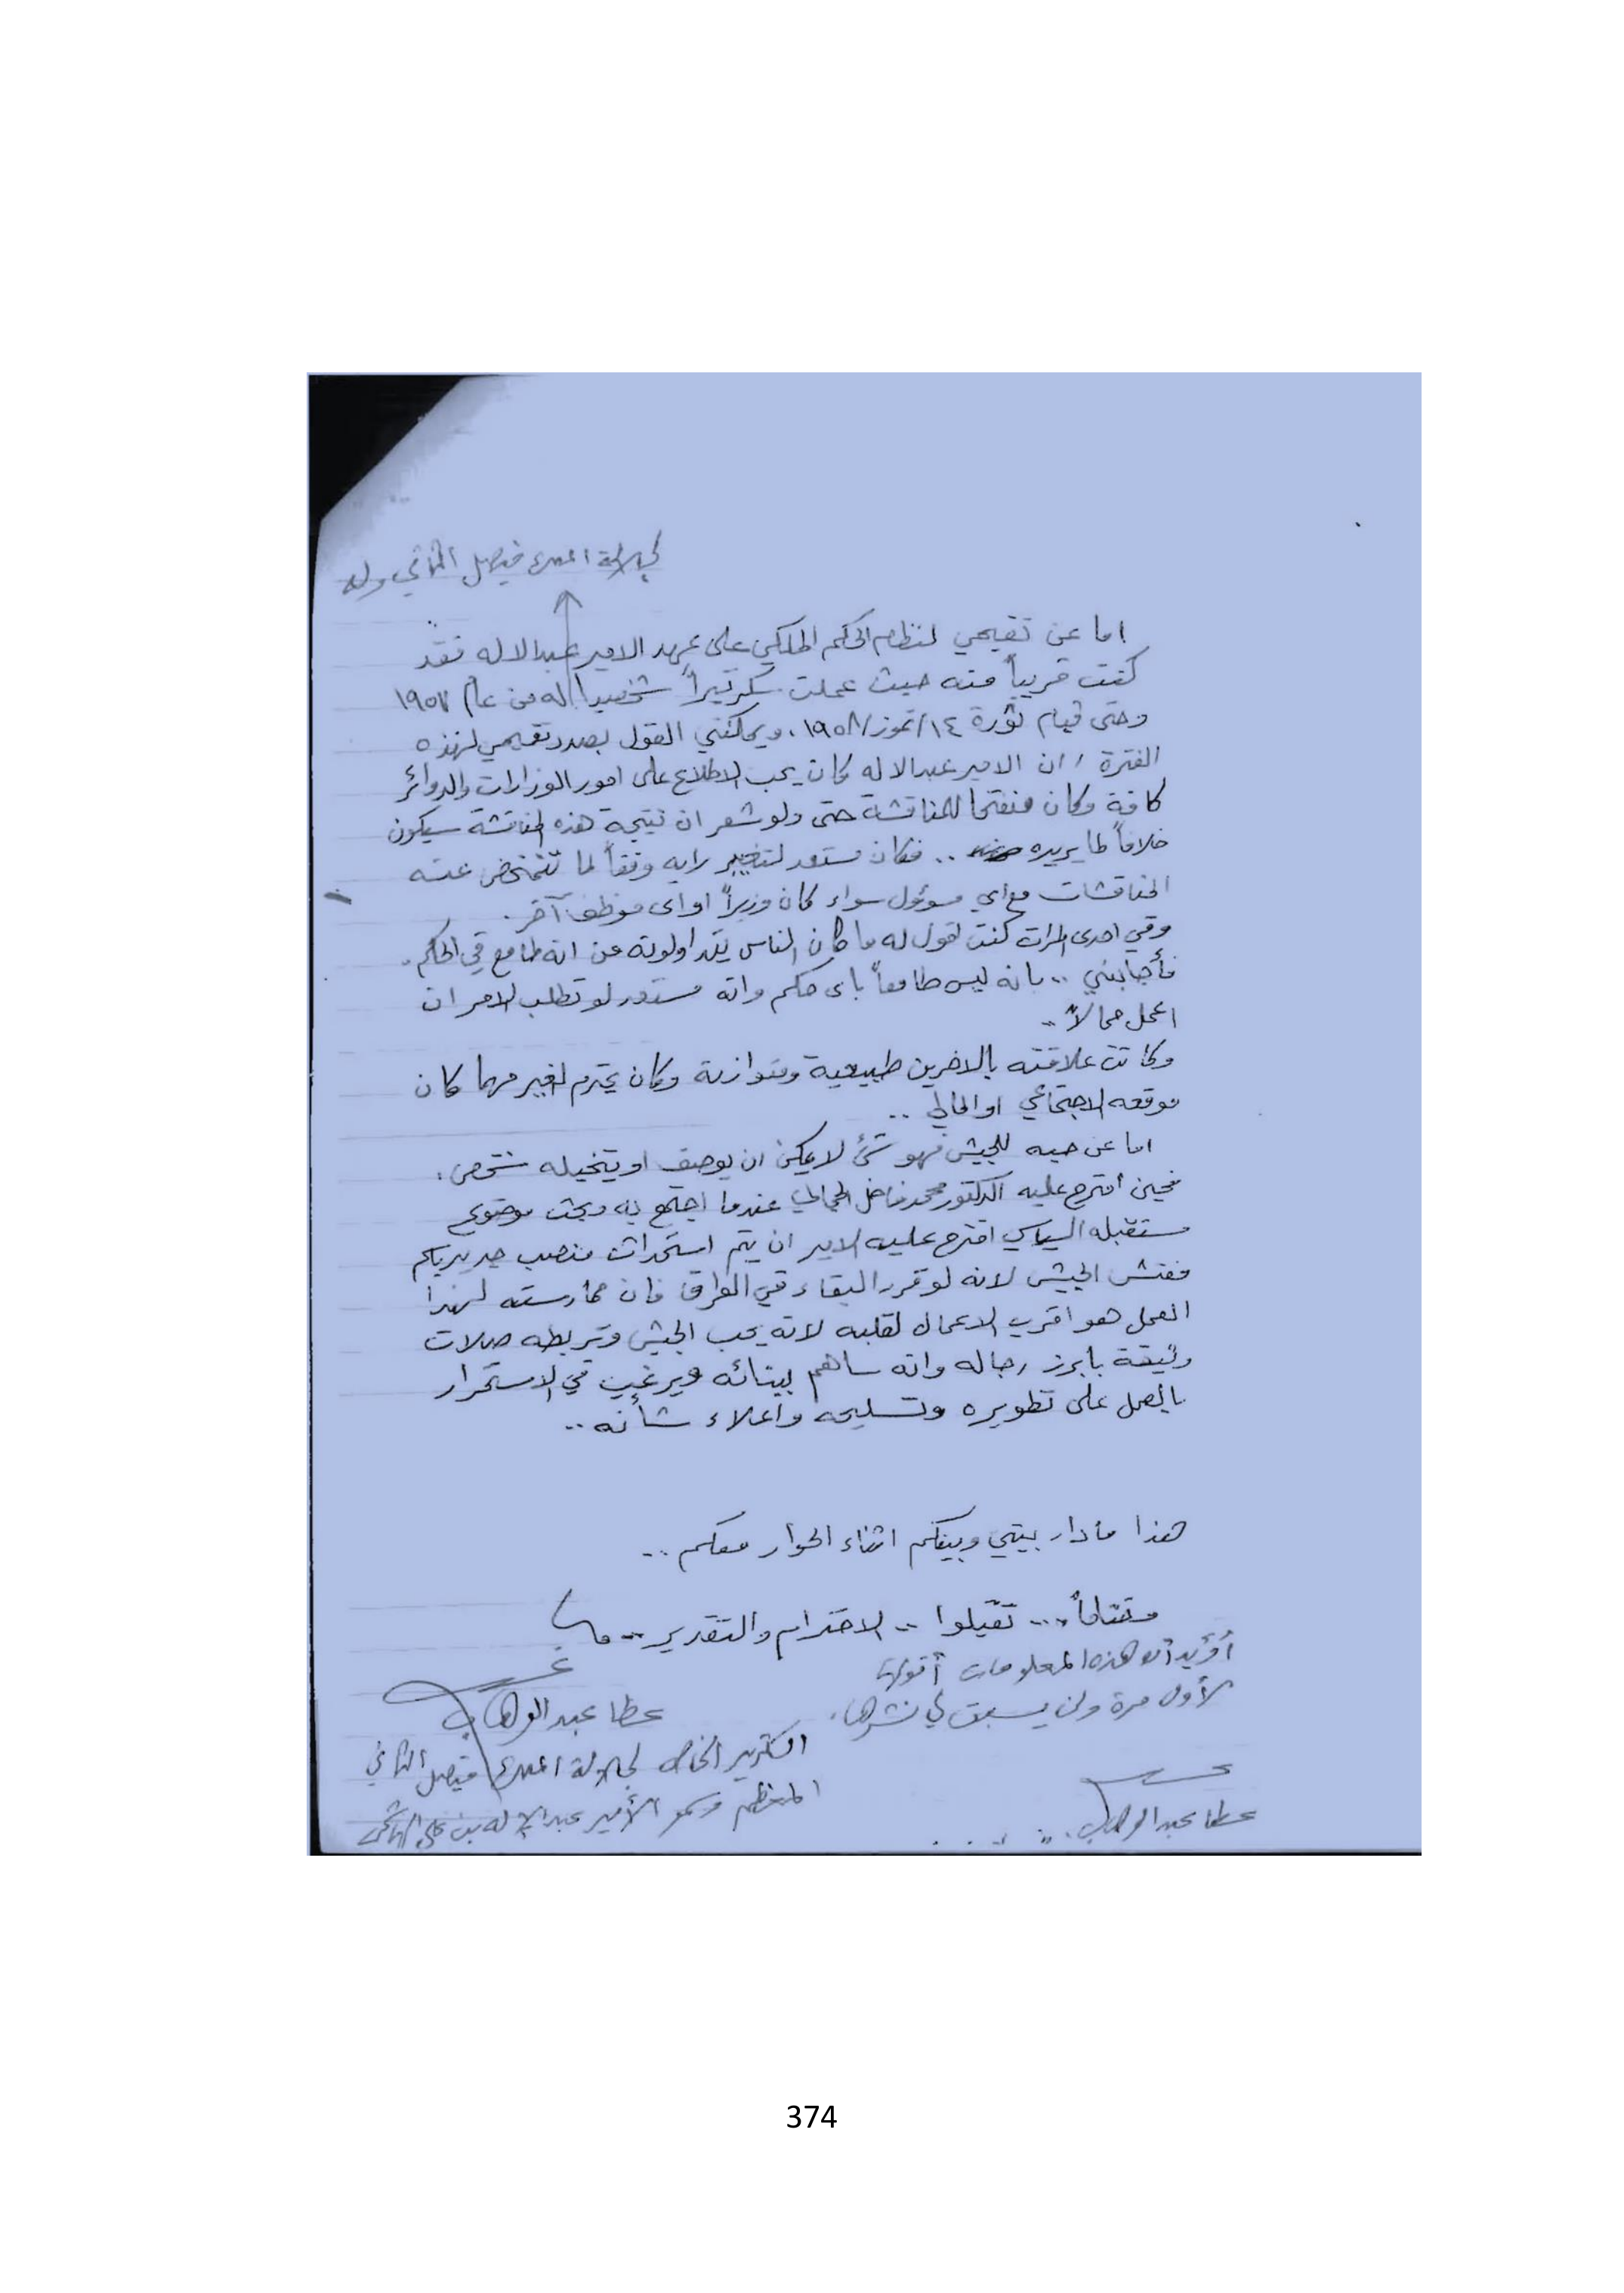 لجلالة الملك فيصل الثاني وله
اما عن تقيمي لنظام الحكم الملكي على عهد الامير عبدالاله فقد
كنت قريباً منه حيث عملت سكرتيراً شخصيا له من عام ١٩٥٧
وحتى قيام ثورة ١٤/تموز/١٩٥٨، ويمكنني القول بصدد تقيمي لهذه
الفترة / ان الامير عبدالاله كان يحب الاطلاع على امور الوزارات والدوائر
كافة وكان منفتحا للمناقشة حتى ولو شعر ان نتيجة هذه المناقشة سيكون
خلافاً لما يريده .. فكان مستعد لتغيير رايه وفقاً لما تتمخض عنه
المناقشات مع اي مسؤول سواء كان وزيراً او اى موظف آخر.
وفي احدى المرات كنت اقول له ما كان الناس يتداولونه عن انه طامع في الحكم.
فأجابني .. بانه ليس طامعاً باى حكم وانه مستعد لو تطلب الامر ان
اعمل حمالاً ..
وكانت علاقته بالاخرين طبيعية ومتوازنة وكان يحترم الغير مهما كان
موقعه الاجتماعي او المالي ..
اما عن حبه للجيش فهو شئ لا يمكن ان يوصف او يتخيله شخص.
فحين اقترح عليه الدكتور محمد فاضل الجمالي عندما اجتمع به وبحث موضوع
مستقبله السياسي اقترح عليه الامير ان يتم استحداث منصب جديد باسم
مفتش الجيش لانه لو قرر البقاء في العراق فان ممارسته لهذا
العمل هو اقرب الاعمال لقلبه لانه يحب الجيش وتربطه صلات
وثيقة بابرز رجاله وانه ساهم ببنائه ويرغب في الاستمرار
بالعمل على تطويره وتسليحه واعلاء شأنه ..
هذا ما دار بيني وبينكم اثناء الحوار معكم ..
وختاماً ... تقبلوا .. الاحترام والتقدير ..
أؤيد أن هذه المعلومات أقولها
لأول مرة ولم يسبق لي نشرها.
عطا عبد الوهاب
السكرتير الخاص لجلالة الملك فيصل الثاني
المعظم وسمو الأمير عبد الإله بن علي الهاشمي
عطا عبد الوهاب
374